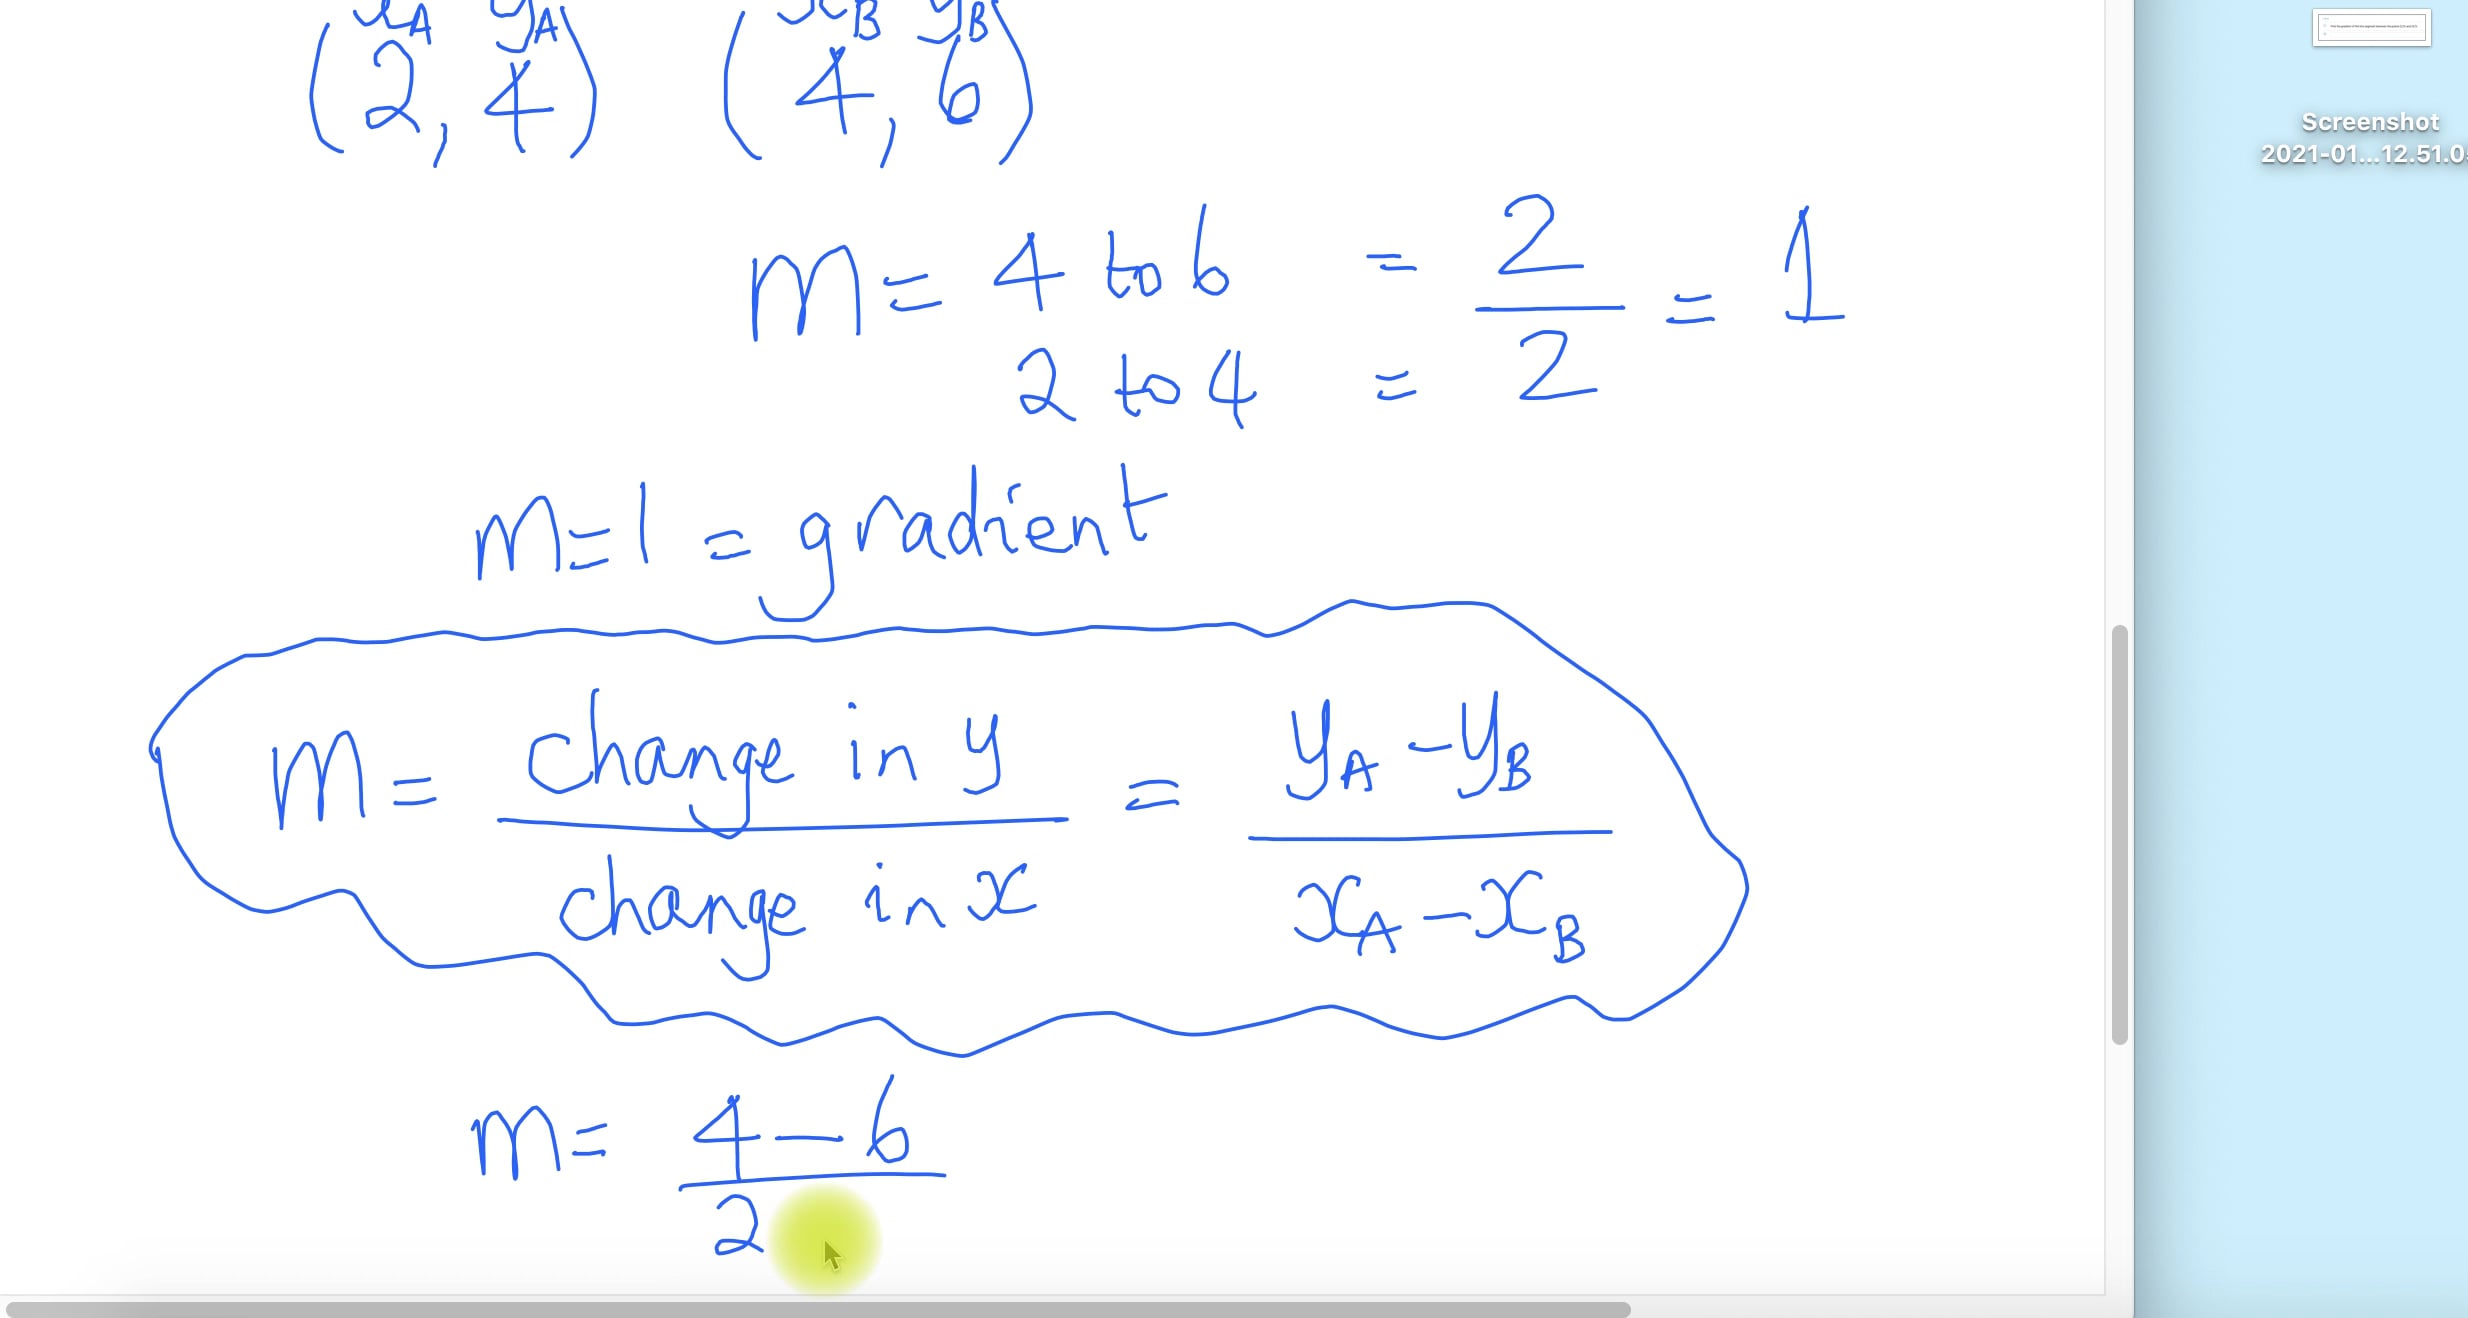 x_A y_A x_B y_B
(2, 4) (4, 6)
m = 4 to 6 = 2
2 to 4 = 2 = 1
m = 1 = gradient
m = change in y / change in x = y_A - y_B / x_A - x_B
m = 4 - 6
2
Screenshot
2021-01...12.51.0